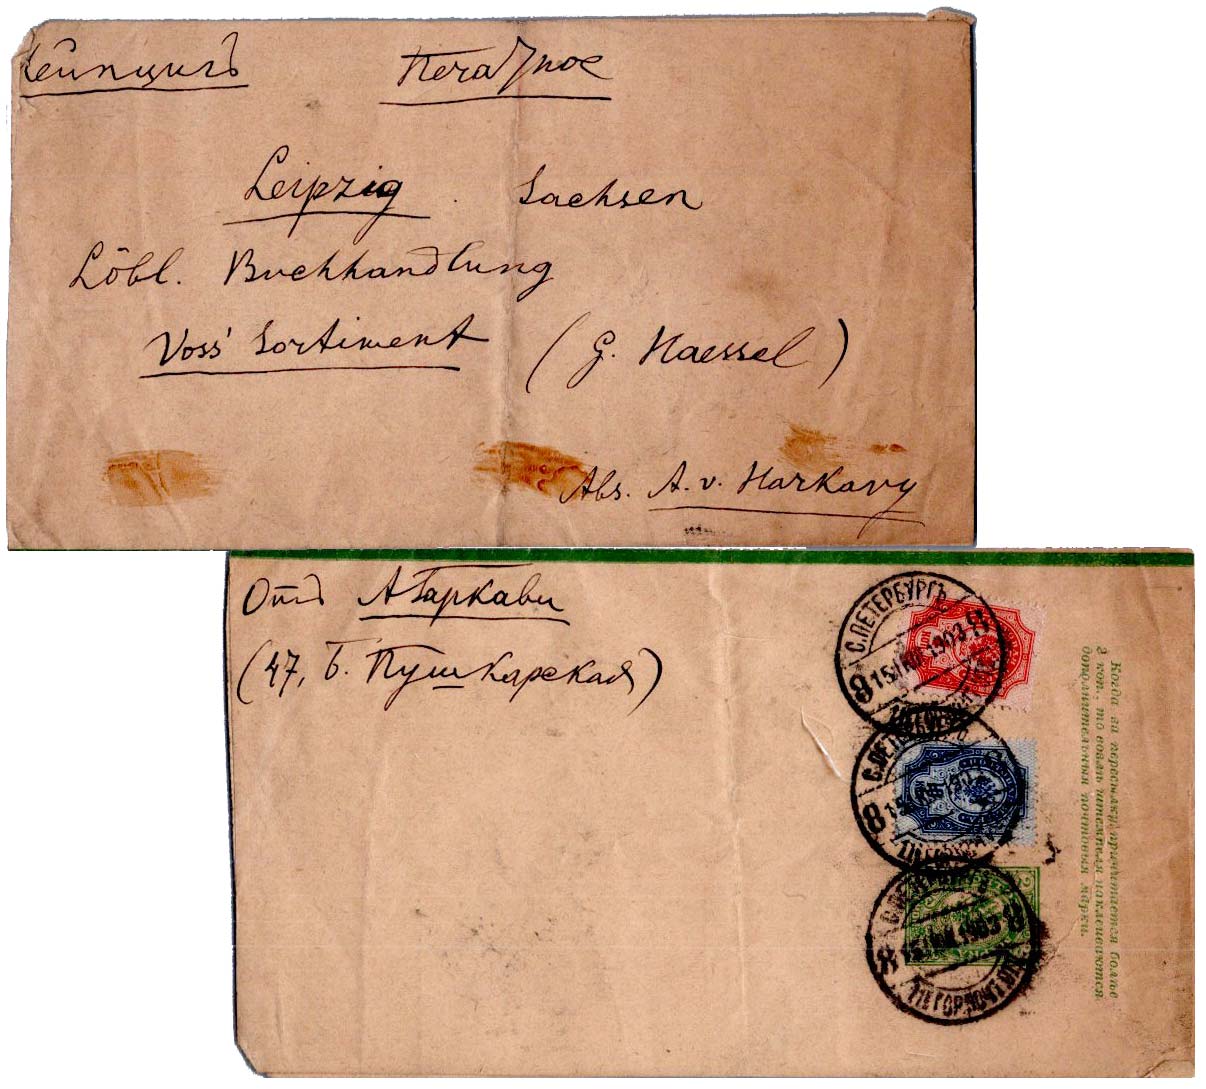 Лейпцигъ Печатное
Leipzig. Sachsen
Löbl. Buchhandlung
Voss' Sortiment (G. Haessel)
Abs. A. v. Harkavy
Отъ А Гаркави
(47, Б. Пушкарская)
С.ПЕТЕРБУРГЪ
8 1903 8
С.ПЕТЕРБУРГЪ
8
8 1903 8
ГОР.ПОЧТ.
Когда за пересылку причитается болѣе
2 коп., то возлѣ штемпеля наклеиваются
дополнительныя почтовыя марки.